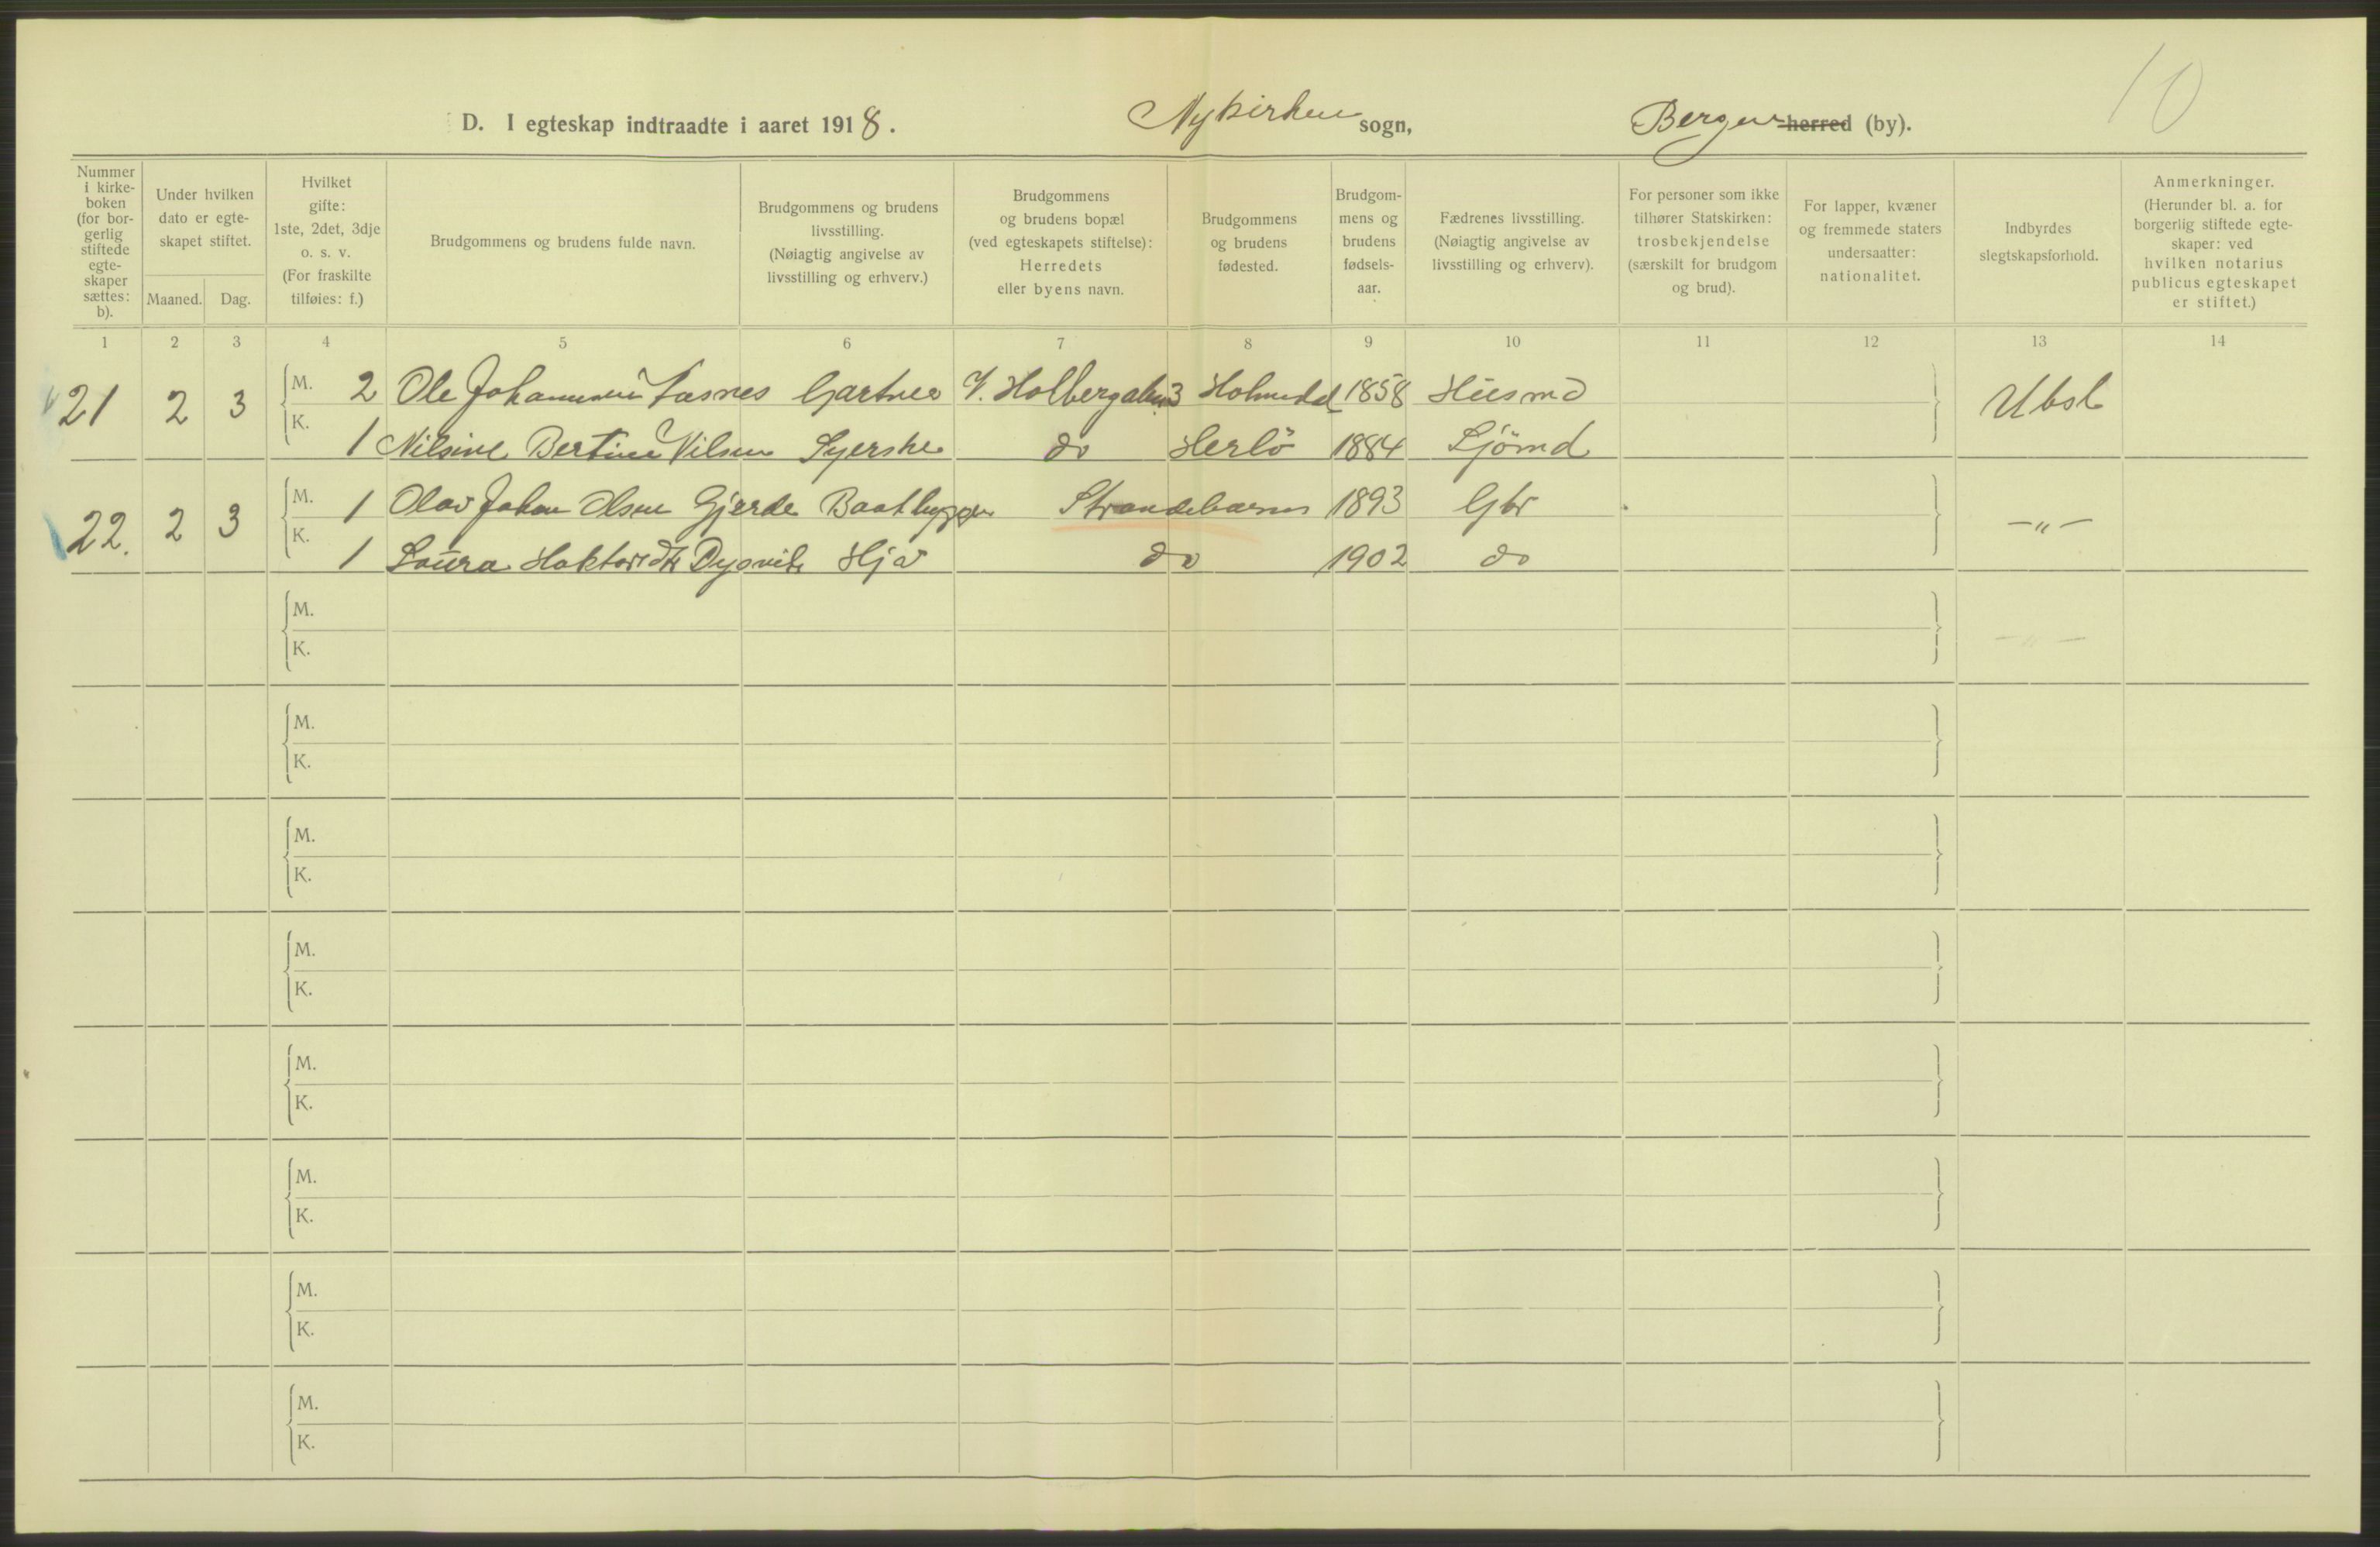 10
D. I egteskap indtraadte i aaret 1918. Nykirken sogn, Bergen herred (by).
Nummer i kirke- boken (for bor- gerlig stiftede egte- skaper sættes: b).
Under hvilken dato er egte- skapet stiftet.
Maaned. Dag.
Hvilket gifte: 1ste, 2det, 3dje o. s. v. (For fraskilte tilføies: f.)
Brudgommens og brudens fulde navn.
Brudgommens og brudens livsstilling. (Nøiagtig angivelse av livsstilling og erhverv.)
Brudgommens og brudens bopæl (ved egteskapets stiftelse): Herredets eller byens navn.
Brudgommens og brudens fødested.
Brudgom- mens og brudens fødsels- aar.
Fædrenes livsstilling. (Nøiagtig angivelse av livsstilling og erhverv).
For personer som ikke tilhører Statskirken: trosbekjendelse (særskilt for brudgom og brud).
For lapper, kvæner og fremmede staters undersaatter: nationalitet.
Indbyrdes slegtskapsforhold.
Anmerkninger. (Herunder bl. a. for borgerlig stiftede egte- skaper: ved hvilken notarius publicus egteskapet er stiftet.)
1 2 3 4 5 6 7 8 9 10 11 12 13 14
21 2 3 M. 2 Ole Johannesen Gartner V. Holbergalm 3 Holmedal 1858 Husmd Ubsl
K. 1 Nilsine Bertine Nilsen Syerske do Herlö 1884 Sjömd
22. 2 3 M. 1 Olav Johan Olsen Gjerde Baatbygger Strandebarm 1893 Gbr —"—
K. 1 Laura Dysvik Hja do 1902 do
M.
K. —"—
M.
K.
M.
K.
M.
K.
M.
K.
M.
K.
M.
K.
M.
K.